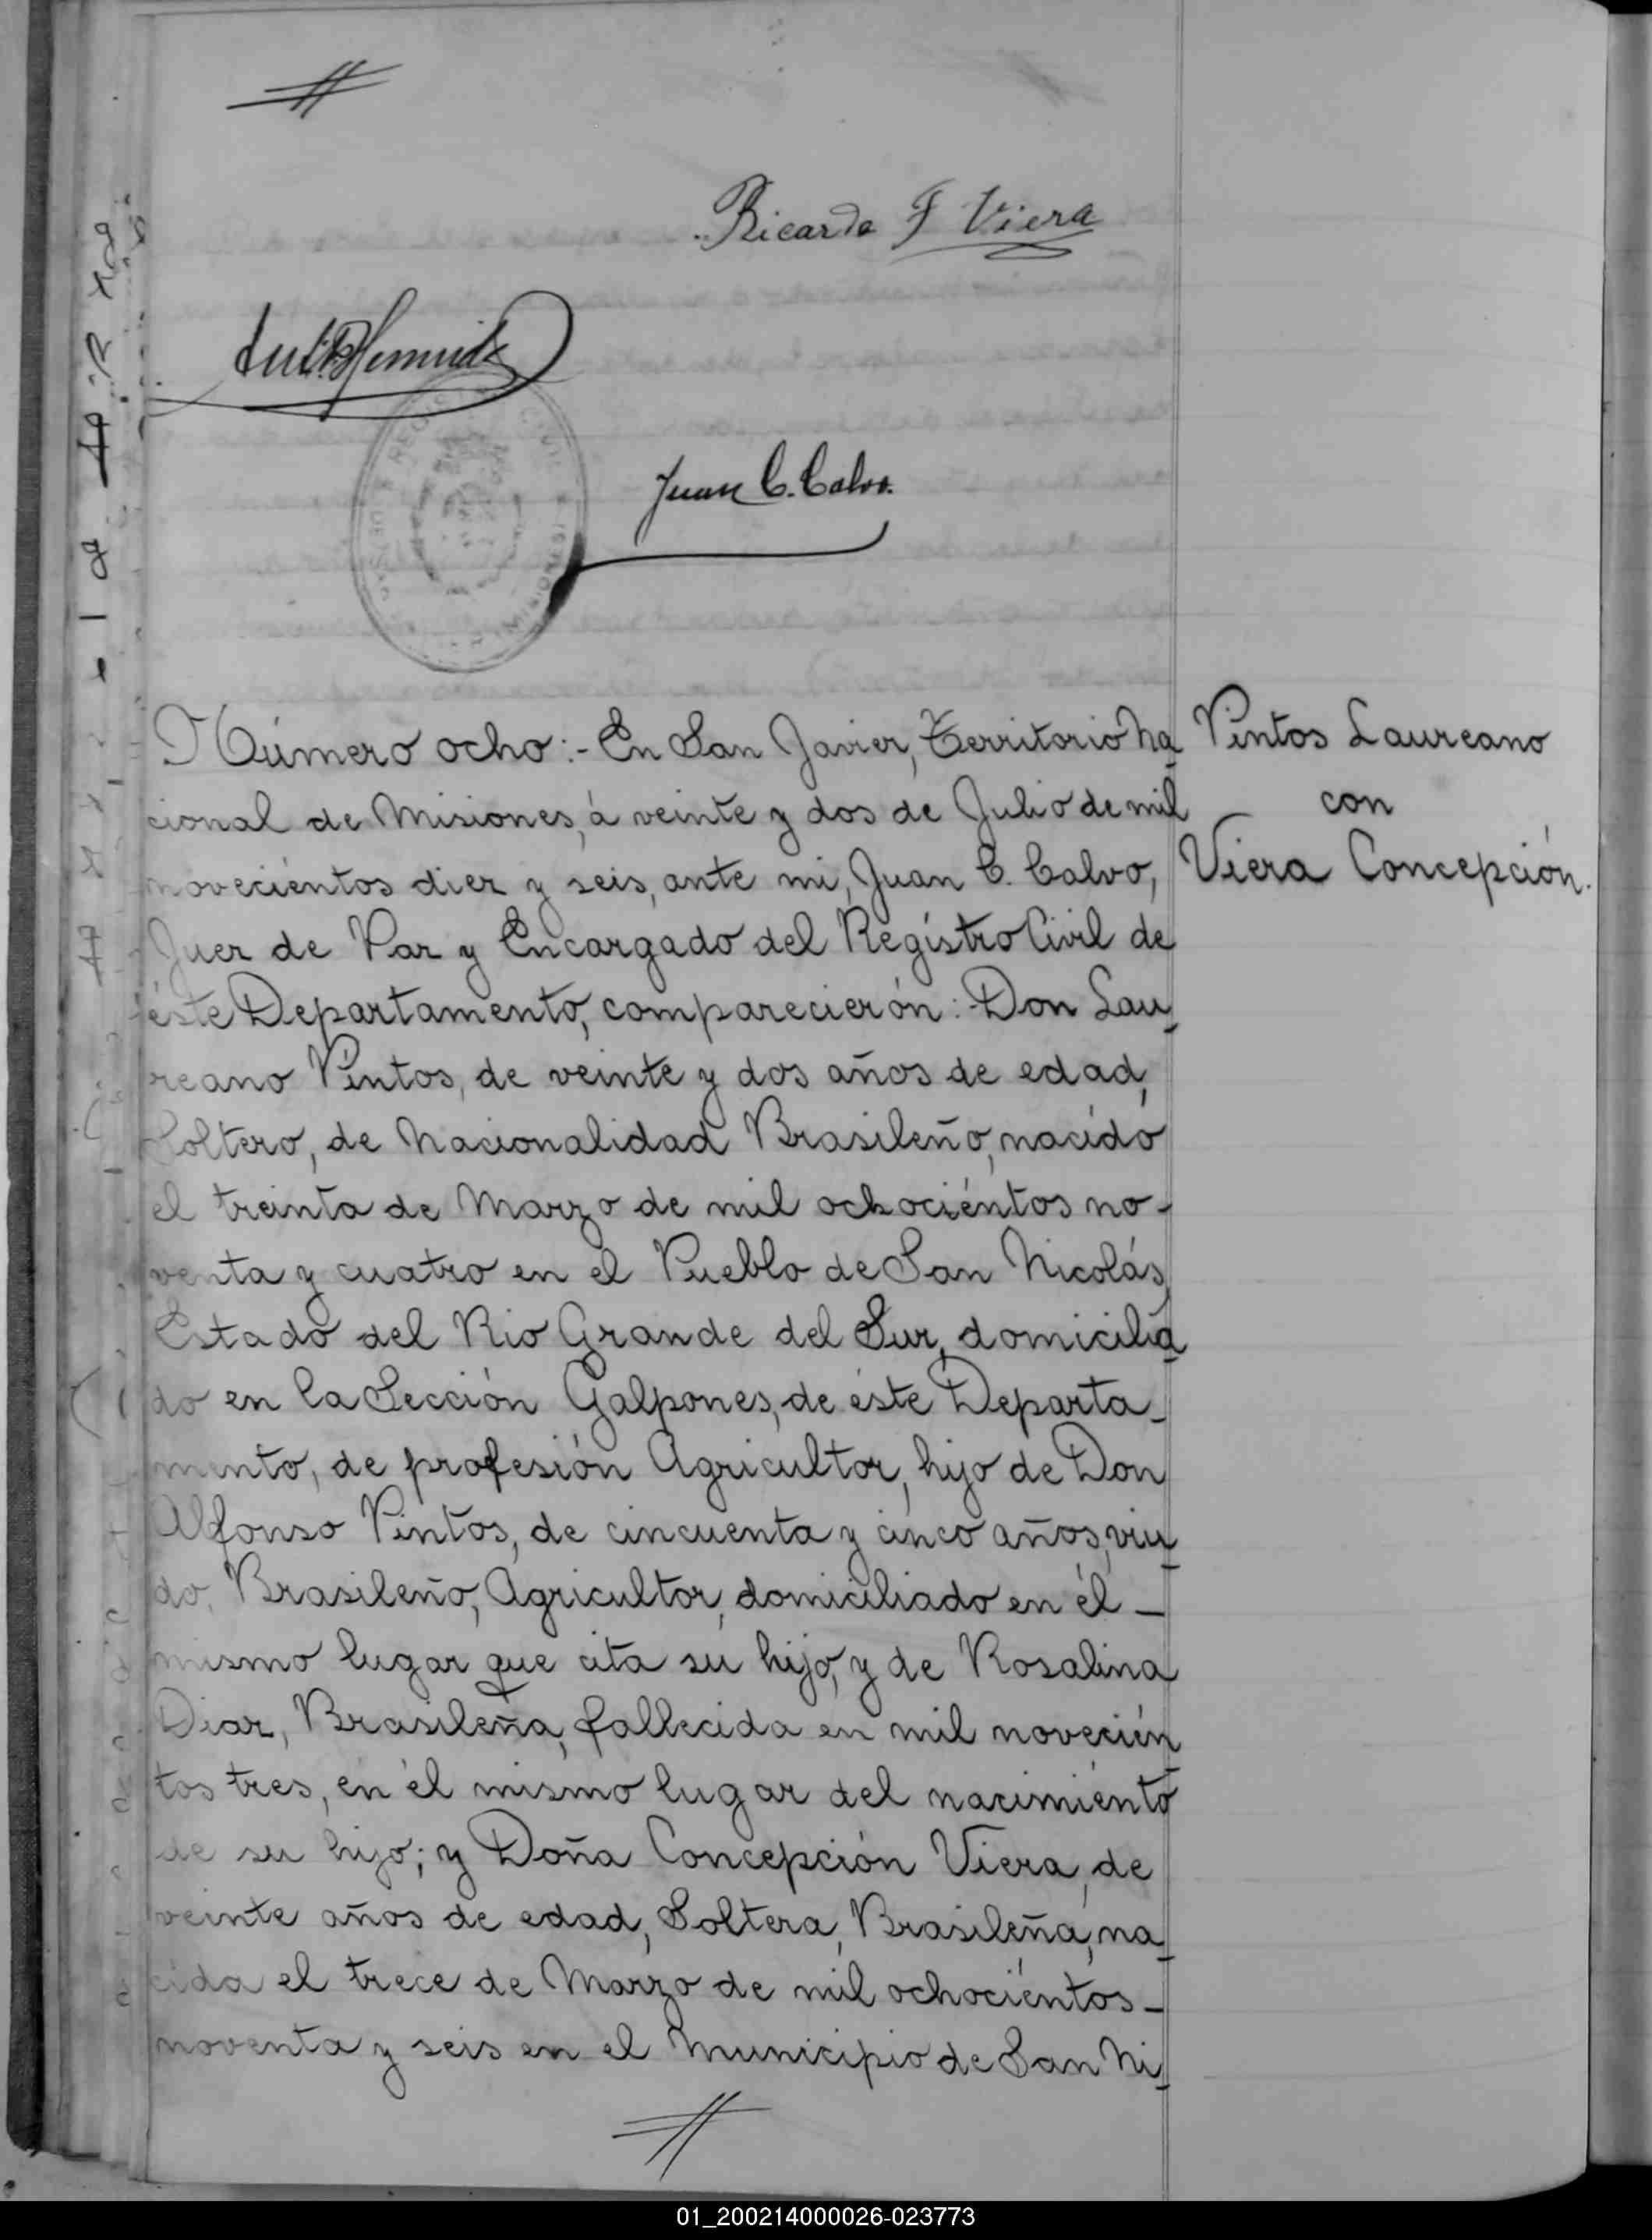 Ricardo F Viera
Juan C. Calvo.
Número ocho:- En San Javier, Territorio Na
cional de Misiones, á veinte y dos de Julio de mil
noveciéntos diez y seis, ante mi, Juan C. Calvo,
Juez de Paz y Encargado del Regístro Civil de
éste Departamento, comparecierón: Don Lau
reano Pintos, de veinte y dos años de edad,
Soltero, de Nacionalidad Brasileño, nacido
el treinta de Marzo de mil ochociéntos no-
venta y cuatro en el Pueblo de San Nicolás,
Estado del Rio Grande del Sur, domicilia
do en la Sección Galpones, de éste Departa-
mento, de profesión Agricultor, hijo de Don
Alfonso Pintos, de cincuenta y cinco años, viu
do, Brasileño, Agricultor, domiciliado en él -
mismo lugar que cita su hijo, y de Rosalina
Diaz, Brasileña, fallecida en mil novecién
tos tres, en él mismo lugar del nacimiénto
de su hijo; y Doña Concepción Viera, de
veinte años de edad, Soltera, Brasileña, na
cida el trece de Marzo de mil ochociéntos -
noventa y seis en el Municipio de San Ni
Pintos Laureano
con
Viera Concepción.
01_200214000026-023773